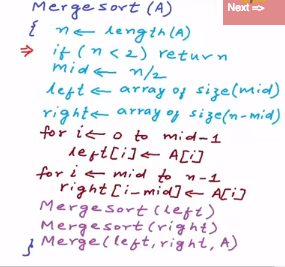 Mergesort (A)
Next =>
{ n ← length(A)
⇒ if (n < 2) return
mid ← n/2
left ← array of size(mid)
right ← array of size(n-mid)
for i ← 0 to mid-1
left[i] ← A[i]
for i ← mid to n-1
right [i-mid] ← A[i]
Mergesort (left)
Mergesort (right)
} Merge(left, right, A)